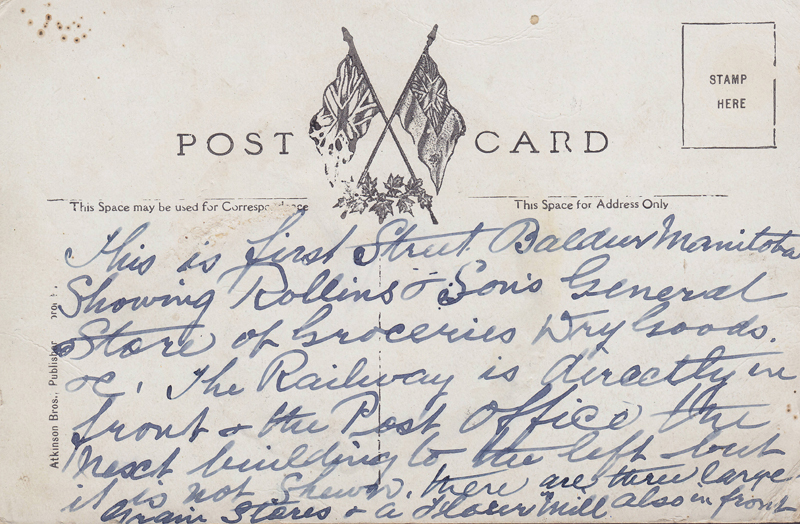 POST CARD
STAMP
HERE
This Space may be used for Correspondence
This Space for Address Only
This is first Street Baldur Manitoba
Showing Rollins & Son's General
Store of Groceries Dry Goods.
&c. The Railway is directly in
front & the Post Office the
Next building to the left but
it is not Shewn. there are three large
Grain Stores & a Flour Mill also in front
Atkinson Bros., Publisher